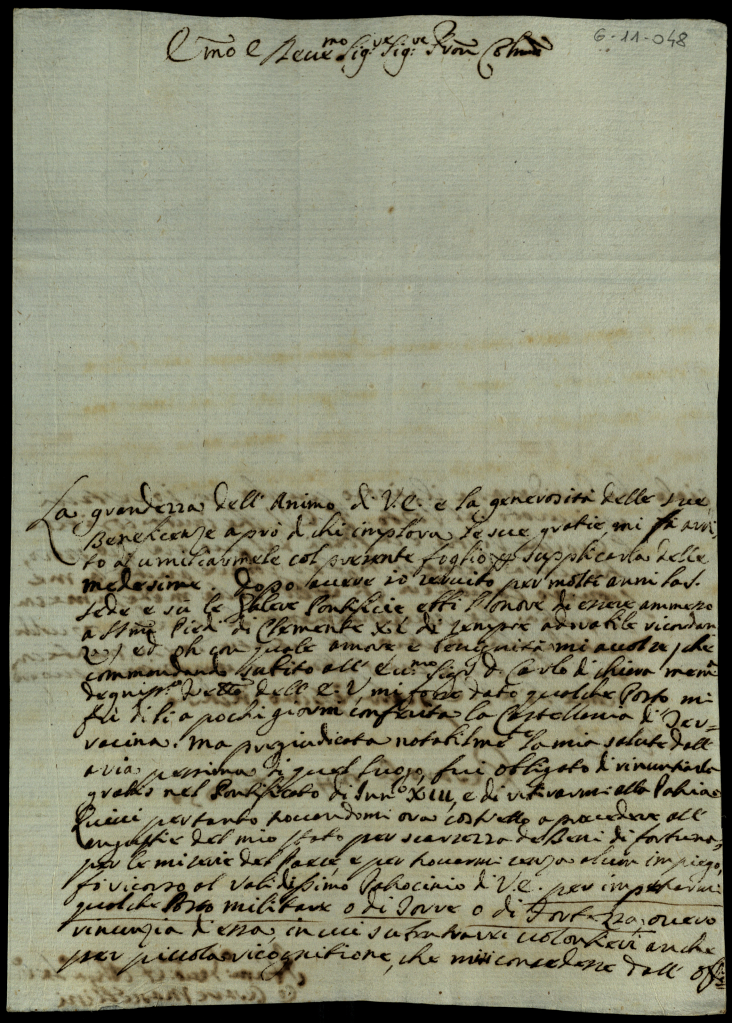 6-11-048
E.mo e Rev.mo Sig.re Sig.re Pron Colmo
La grandezza dell' Animo di V.E. e la generosità delle sue
Beneficenze a prò di chi implora le sue gratie, mi fà ardi-
to di umiliarmele col presente foglio p supplicarla delle
medesime. Dopo avere io servito per molti anni la S.
Sede e sù le Galere Pontificie ebbi l'honore di essere ammesso
a S.mi Piedi di Clemente XI di sempre adorabile ricordan
za, ed oh con quale amore e benignità mi accolse, che
commandando subito all' Em.mo Sig.r D. Carlo di chiara mem.a
degnis.mo della E.V. mi fosse dato qualche Posto mi
fù di lì a pochi giorni conferita la Castellania di Ter-
racina. Ma pregiudicata notabilm.te la mia salute dall'
aria pessima di quel luogo, fui obligato di rinuntiarla
gratis nel Pontificato di Inn.o XIII, e di ritirarmi alla Patria.
Quivi pertanto trovandomi ora costretto a procedere all'
angustie del mio stato per scarsezza de Beni di fortuna,
per le miserie del Paese, e per trovarmi senza alcun impiego,
fò ricorso al validissimo Patrocinio di V.E. per impetrarmi
qualche Posto militare o di Torre o di Fortezza, overo
rinunzia di essa, in cui subentrarei volontieri anche
per piccola ricognitione, che mi si concedesse dall'